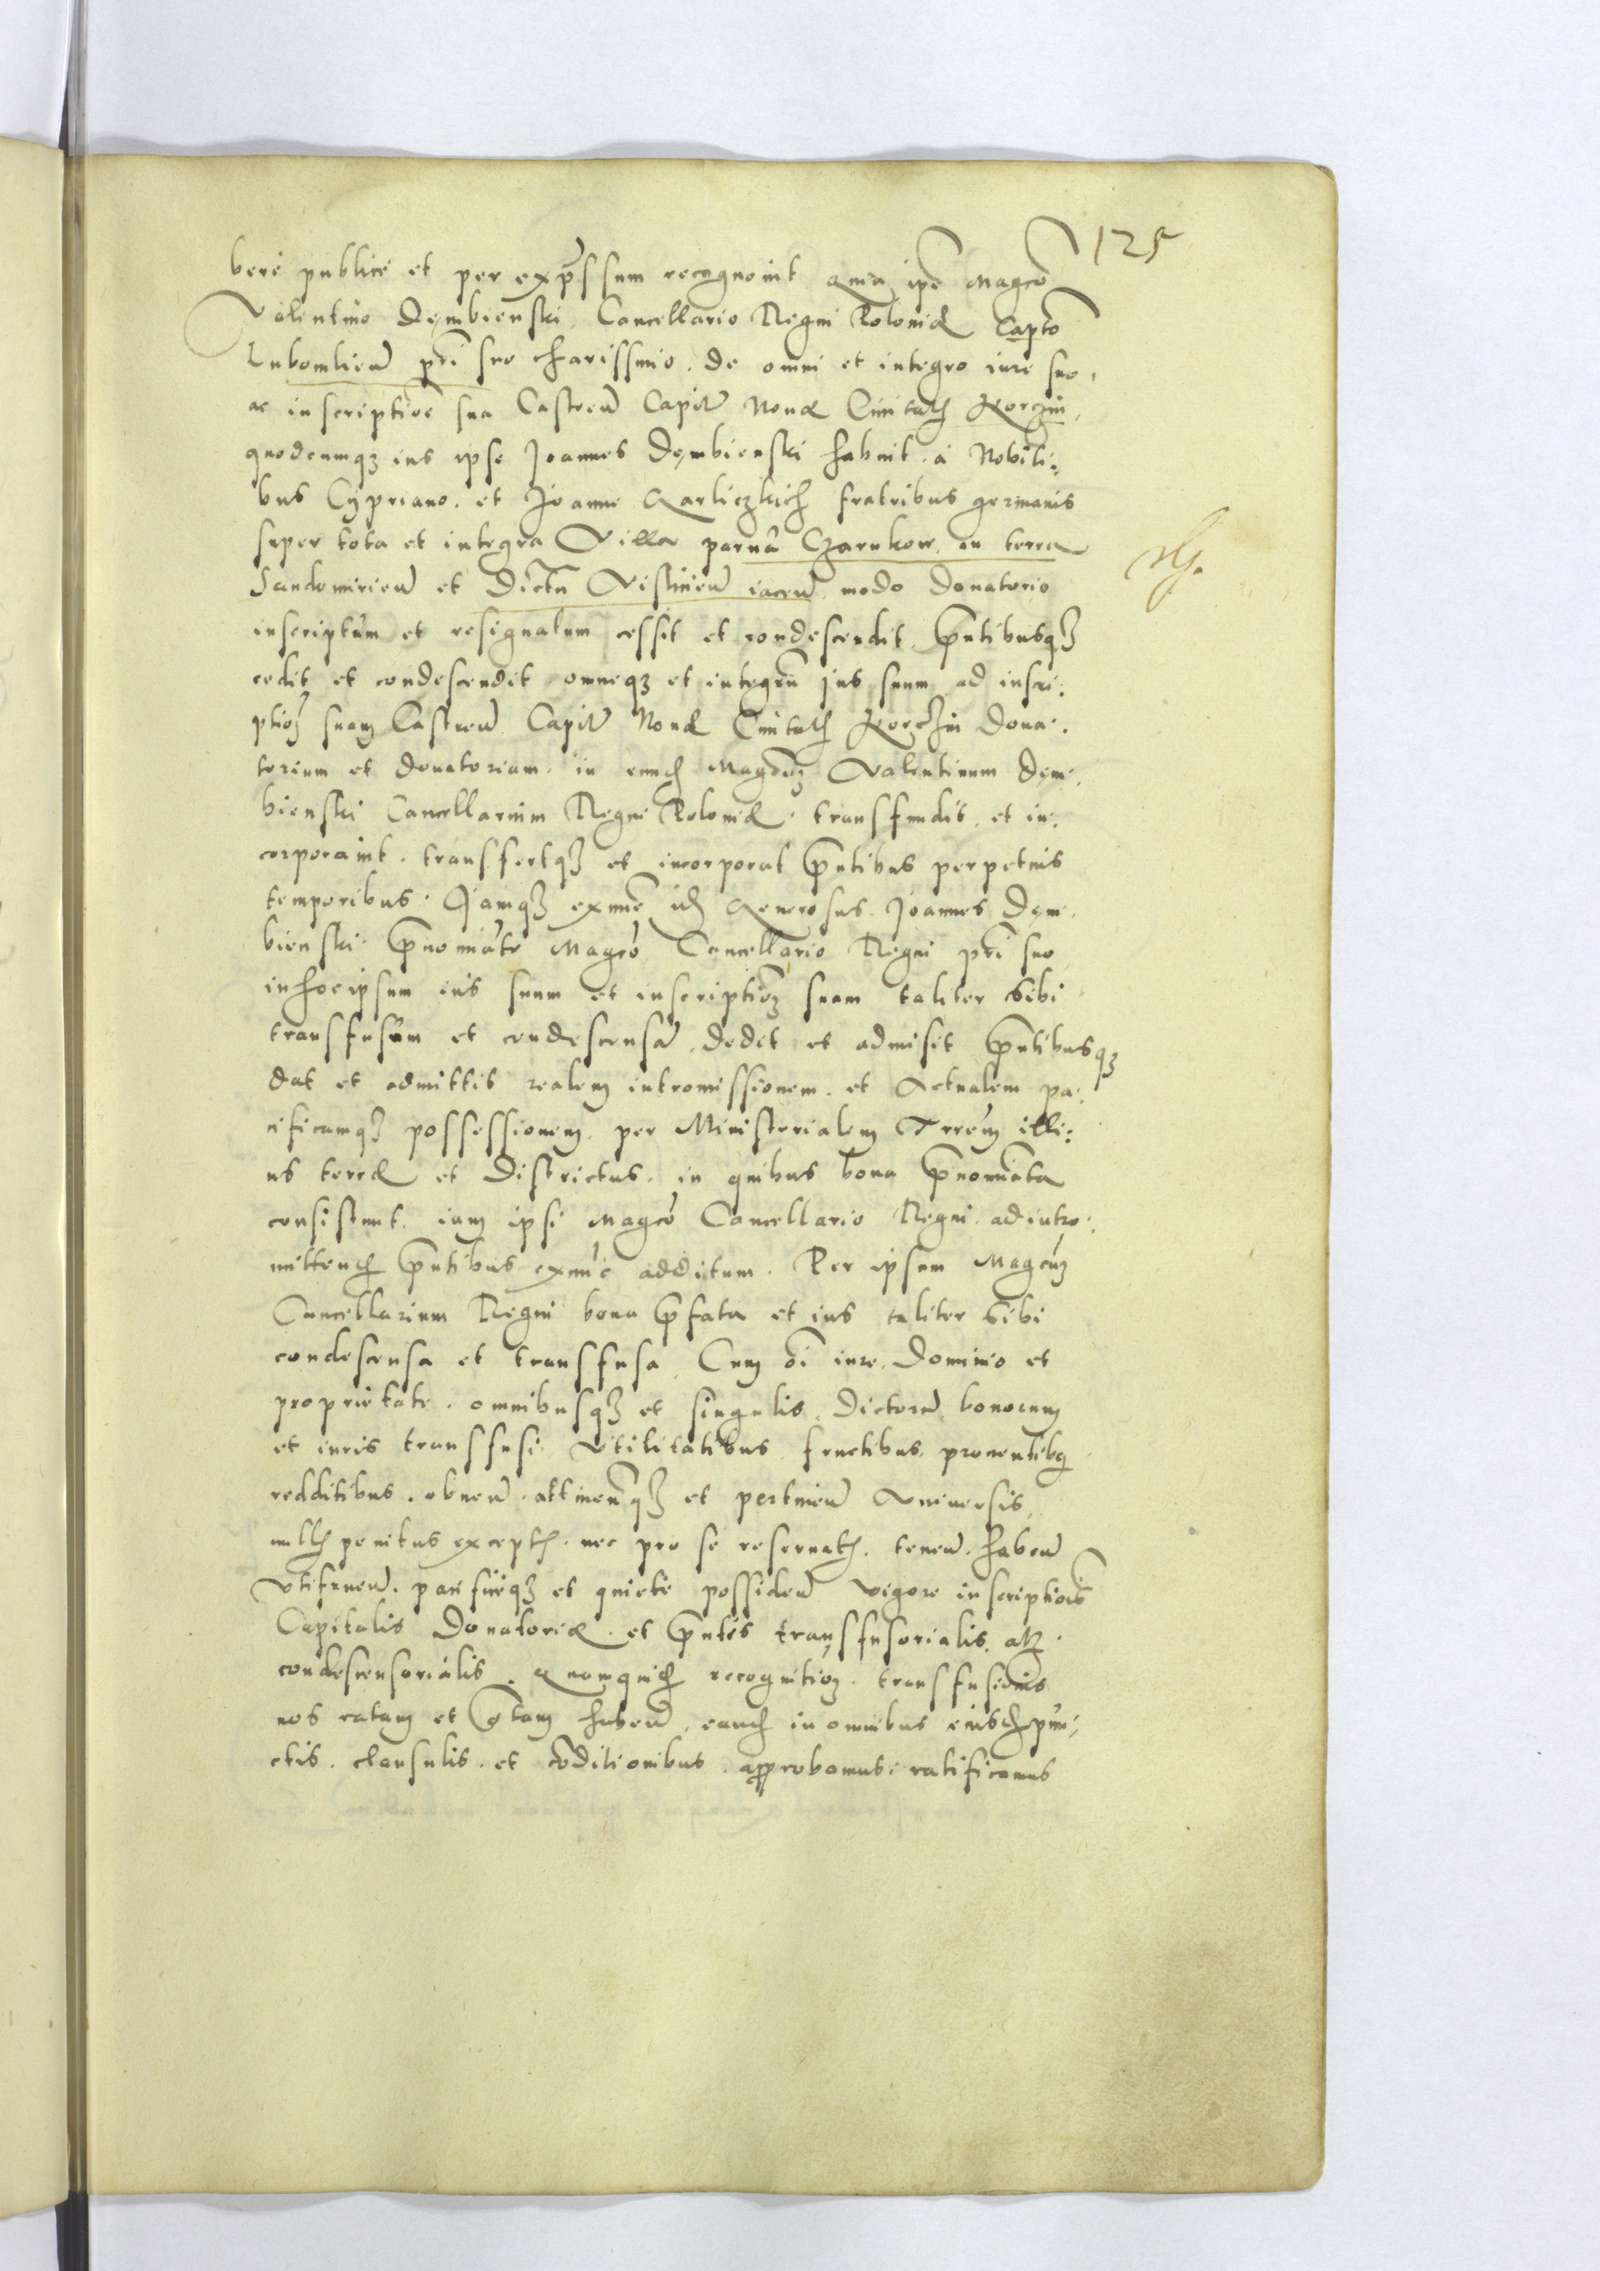 125
bere publice et per exp̄ssum recognouit quia ipe Magco
Valentino Dembienski Cancellario Regni Poloniæ Capto
Lubomlien pri suo charissimo . de omni et integro iure suo,
ac inscriptioe sua Castren Capitl Nouæ Ciuitatis Korczin,
quodcumqz ius ipse Joannes Dembienski habuit . à Nobili:
bus Cypriano . et Joanne Karliczkich fratribus germanis
super tota et integra Villa parua Czarnkow in terra
Sandomirien et Dictu Vislicien iacen modo donatorio
inscriptum et resignatum cessit et condescendit p̄ntibusqz
cedit et condescendit omneqz et integru ius suum ad inscri:
ptioz suam Castren Capitl Nouæ Ciuitatis Korczin dona:
torium et donatoriam in eundem Magcuz Valentinum Dem:
bienski Cancellarium Regni Poloniæ transfudit et in:
corporauit . transfertqz et incorporat p̄ntibus perpetuis
temporibus . Jamqz exnunc idem Generosus Joannes Dem:
bienski p̄nomiato Magco Cancellario Regni pri suo
in hoc ipsum ius suum et inscriptioz suam taliter sibi
transfusum et condescensa dedit et admisit p̄ntibusqz
dat et admittit realem intromissionem . et Actualem pa:
cificamqz possessionem per Ministerialem Terreum illi:
us terræ et Districtus . in quibus bona p̄nominata
consistunt iam ipsi Magco Cancellario Regni ad intro:
mittendum p̄ntibus exnunc additum . Per ipsum Magcuz
Cancellarium Regni bona p̄fata et ius taliter sibi
condescensa et transfusa . Cum oi iure Dominio et
proprietate . omnibusqz et singulis Dictoru bonorum
et iuris transfusi vtilitatibus fructibus prouentibq
redditibus . obuen . attinenqz et pertinen Vniuersis,
nullis penitus exceptis . nec pro se reseruatis . tenen . haben
vtifruen . pacificeqz et quiete possiden vigore inscriptiois
Capitalis Donatoriæ . et p̄ntis transfusorialis atqz
condescensorialis . Quamquidem recognitioz transfusionis
nos ratam et gratam haben, eandem in omnibus eius pun:
ctis . clausulis . et coditionibus . approbamus . ratificamus